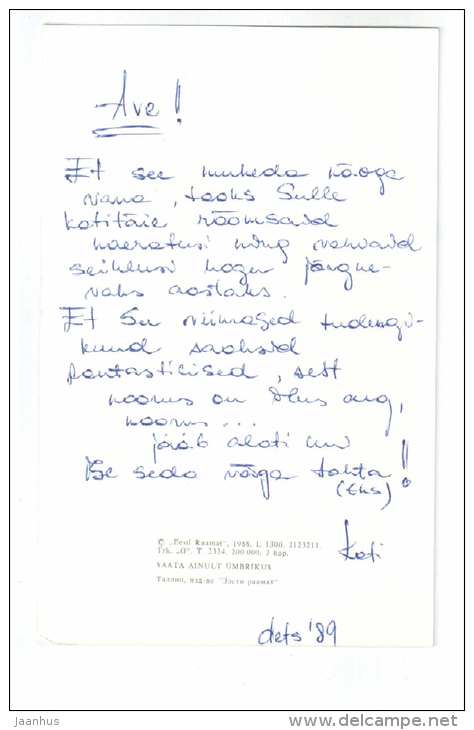 Ave!
Et see muheda näoga
vana, tooks Sulle
kotitäie rõõmsaid
naeratusi ning vahvaid
seiklusi kogu järgne-
vaks aastaks.
Et Su viimased tudengi-
kuud saaksid
fantastilised, sest
noorus on ilus aeg,
noorus...
jääb alati kui
ise seda väga tahta!
(Eks)
Kati
© „Eesti Raamat", 1988. L 1300. 1123211.
Trk. „O". T. 2334. 200 000. 3 kop.
SAATA AINULT ÜMBRIKUS
Таллин, изд-во "Ээсти раамат"
dets '89
© Jaanhus
www.delcampe.net